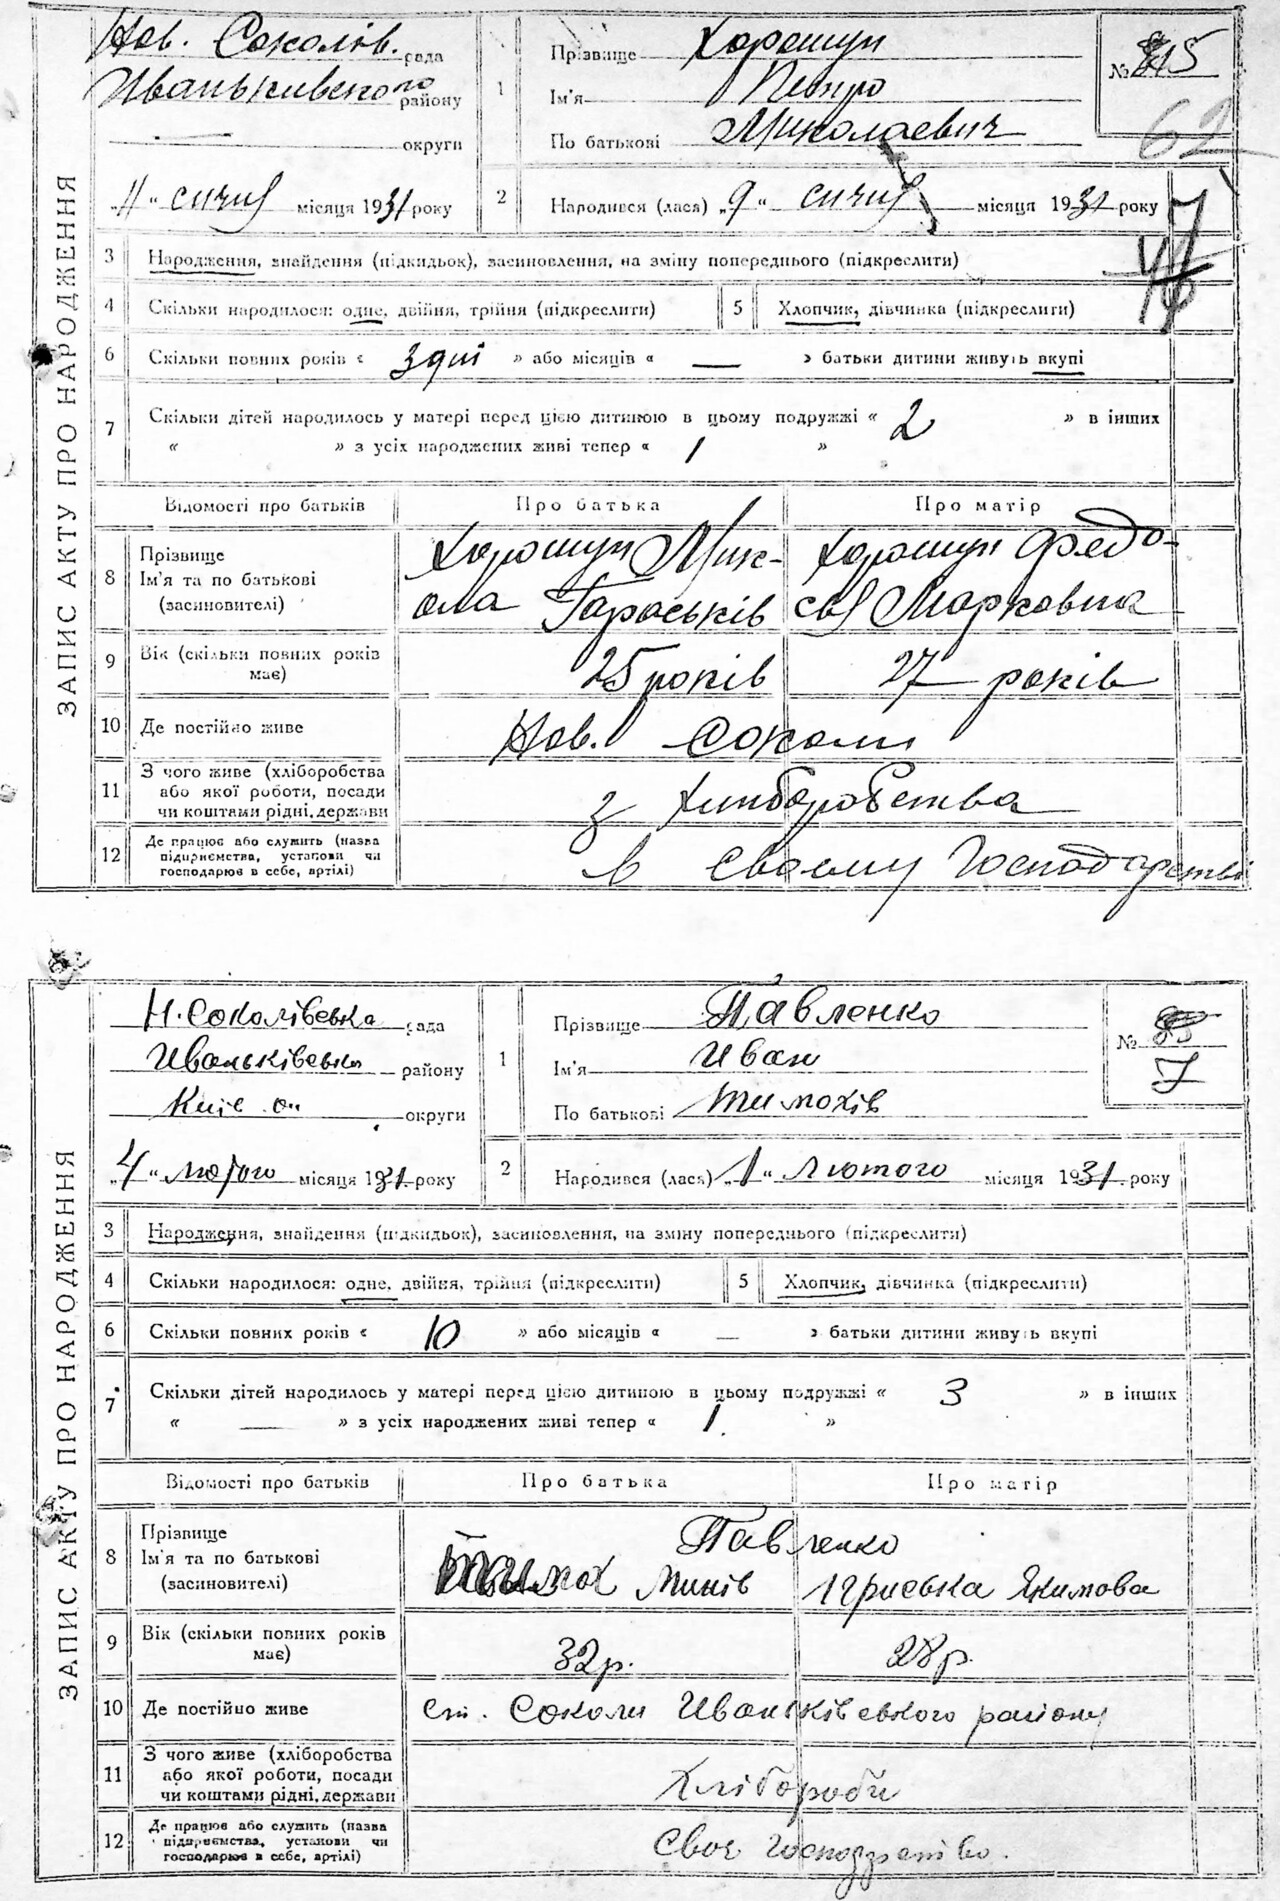 ЗАПИС АКТУ ПРО НАРОДЖЕННЯ
Нов. Соколів. рада
Иваньківського району
округи
1
Прізвище Хорошун
Ім'я Петро
По батькові Миколаевич
№ 15
62
"11" січня місяця 1931 року
2
Народився (лася) "9" січня місяця 1931 року
7
3 Народження, знайдення (підкидьок), засиновлення, на зміну попереднього (підкреслити)
4 Скільки народилося: одне, двійня, трійня (підкреслити)
5 Хлопчик, дівчинка (підкреслити)
6 Скільки повних років « 3 дні » або місяців « — » батьки дитини живуть вкупі
7 Скільки дітей народилось у матері перед цією дитиною в цьому подружжі « 2 » в інших
« » з усіх народжених живі тепер « 1 »
Відомості про батьків Про батька Про матір
8 Прізвище
Ім'я та по батькові
(засиновителі)
Хорошун Мик-
ола Тараськів
Хорошун Федо-
ся Марковна
9 Вік (скільки повних років
має)
25 років 27 років
10 Де постійно живе Нов. Соколи
11 З чого живе (хліборобства
або якої роботи, посади
чи коштами рідні, держави
з хлиборобства
12 Де працює або служить (назва
підприємства, установи чи
господарює в себе, артілі)
в своему Господарстві
ЗАПИС АКТУ ПРО НАРОДЖЕННЯ
Н. Соколівська рада
Иваньківська району
округи
1
Прізвище Павленко
Ім'я Иван
По батькові Тимохів
№ 7
"4" лютого місяця 1931 року
2
Народився (лася) "1" Лютого місяця 1931 року
3 Народження, знайдення (підкидьок), засиновлення, на зміну попереднього (підкреслити)
4 Скільки народилося: одне, двійня, трійня (підкреслити)
5 Хлопчик, дівчинка (підкреслити)
6 Скільки повних років « 10 » або місяців « — » батьки дитини живуть вкупі
7 Скільки дітей народилось у матері перед цією дитиною в цьому подружжі « 3 » в інших
« — » з усіх народжених живі тепер « 1 »
Відомості про батьків Про батька Про матір
8 Прізвище
Ім'я та по батькові
(засиновителі)
Павленко
Тимох Минів
Якимова
9 Вік (скільки повних років
має)
32 р. 28 р.
10 Де постійно живе Ст. Соколи Иваньківського району
11 З чого живе (хліборобства
або якої роботи, посади
чи коштами рідні, держави
Хлібороби
12 Де працює або служить (назва
підприємства, установи чи
господарює в себе, артілі)
Своє господарство.